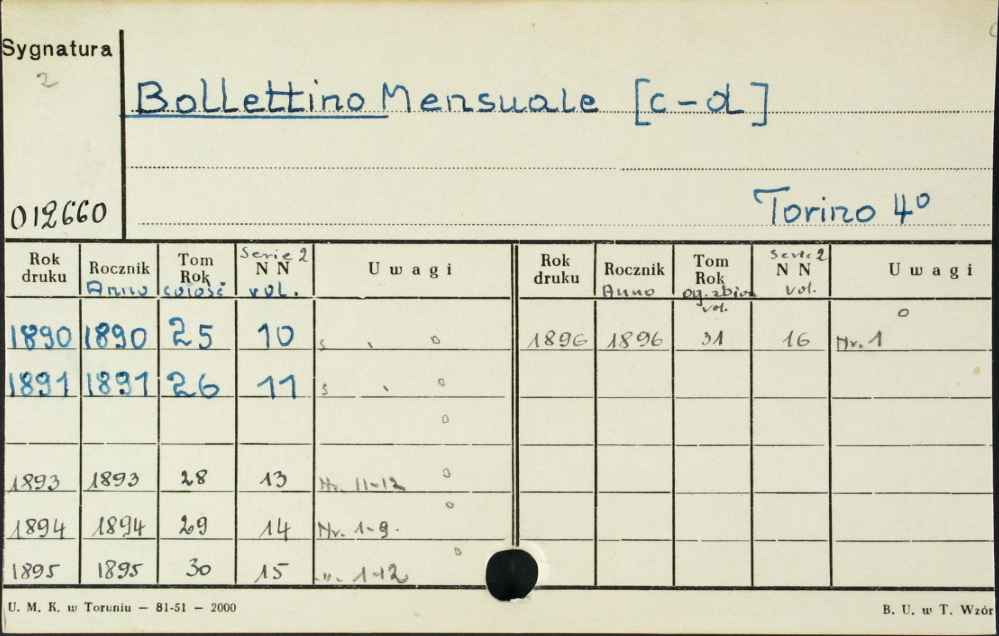 Sygnatura
2
Bollettino Mensuale [c-d]
012660
Torino 4o
Rok druku Rocznik Anno Tom Rok całość Serie 2 N N vol. Uwagi Rok druku Rocznik Anno Tom Rok og. zbior vol. Serie 2 N N vol. Uwagi
1890 1890 25 10 s o 1896 1896 31 16 Nr. 1 o
1891 1891 26 11 s o
o
1893 1893 28 13 Nr. 11-12 o
1894 1894 29 14 Nr. 1-9. o
1895 1895 30 15 „ 1-12 o
U. M. K. w Toruniu — 81-51 — 2000
B. U. w T. Wzór